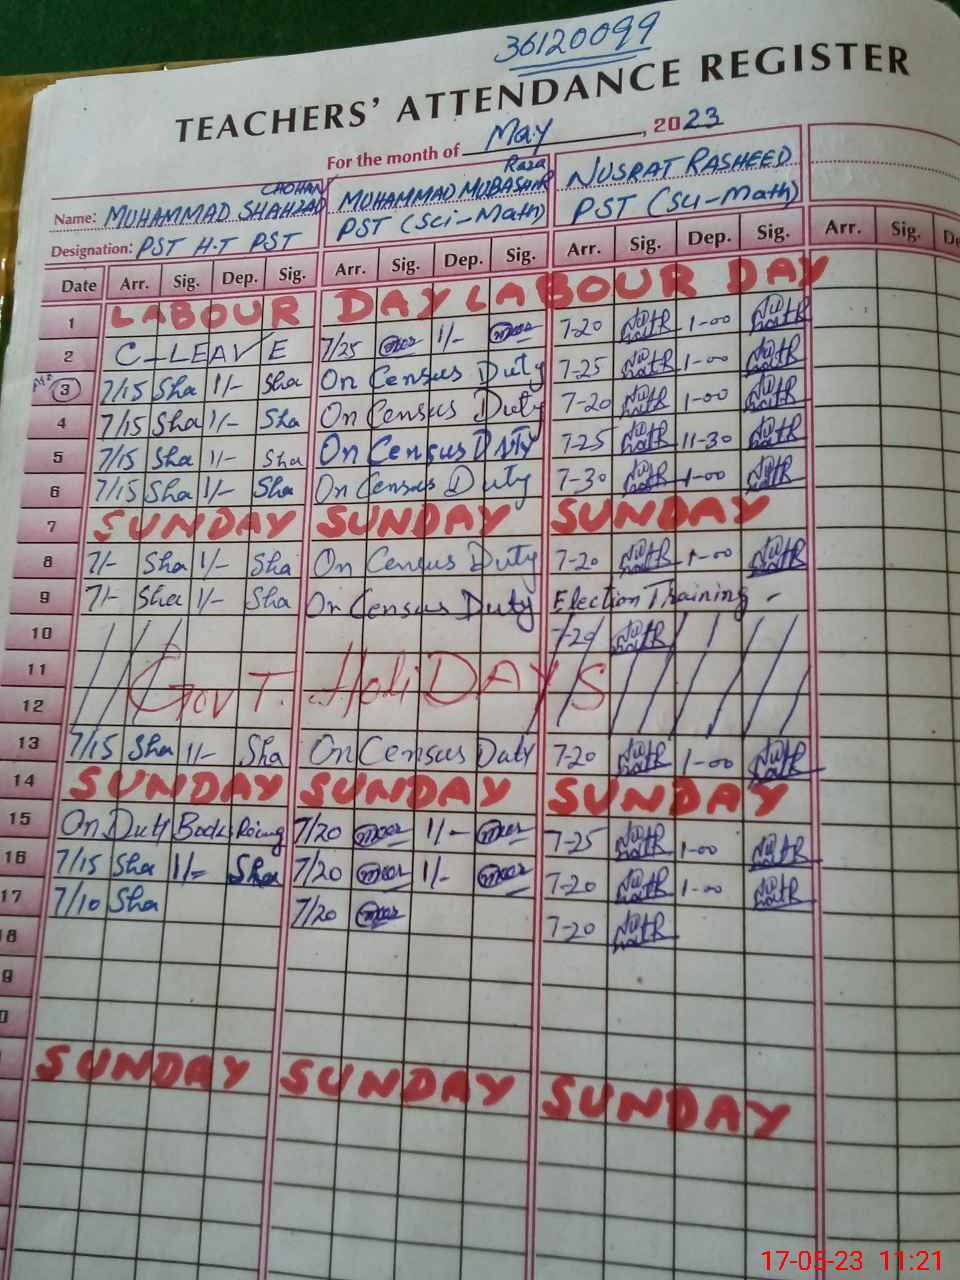 36120099
TEACHERS' ATTENDANCE REGISTER
For the month of May, 2023
Name: MUHAMMAD SHAHZAD CHOHAN MUHAMMAD MUBASHIR Raza NUSRAT RASHEED
Designation: PST H.T PST PST (Sci-Math) PST (Sci-Math)
Date Arr. Sig. Dep. Sig. Arr. Sig. Dep. Sig. Arr. Sig. Dep. Sig. Arr. Sig.
1 LABOUR DAY LABOUR DAY
2 C-LEAVE 7/25 1/- 7-20 1-00
3 7/15 Sha 1/- Sha On Census Duty 7-25 1-00
4 7/15 Sha 1/- Sha On Census Duty 7-20 1-00
5 7/15 Sha 1/- Sha On Census Duty 7-25 11-30
6 7/15 Sha 1/- Sha On Census Duty 7-30 1-00
7 SUNDAY SUNDAY SUNDAY
8 7/- Sha 1/- Sha On Census Duty 7-20 1-00
9 7/- Sha 1/- Sha On Census Duty Election Training -
10 7-20
11 GOVT. HoliDAYS
12
13 7/15 Sha 1/- Sha On Census Duty 7-20 1-00
14 SUNDAY SUNDAY SUNDAY
15 On Duty Books 7/20 1/- 7-25 1-00
16 7/15 Sha 1/= Sha 7/20 1/- 7-20 1-00
17 7/10 Sha 7/20 7-20
18
9
0
SUNDAY SUNDAY SUNDAY
17-05-23 11:21